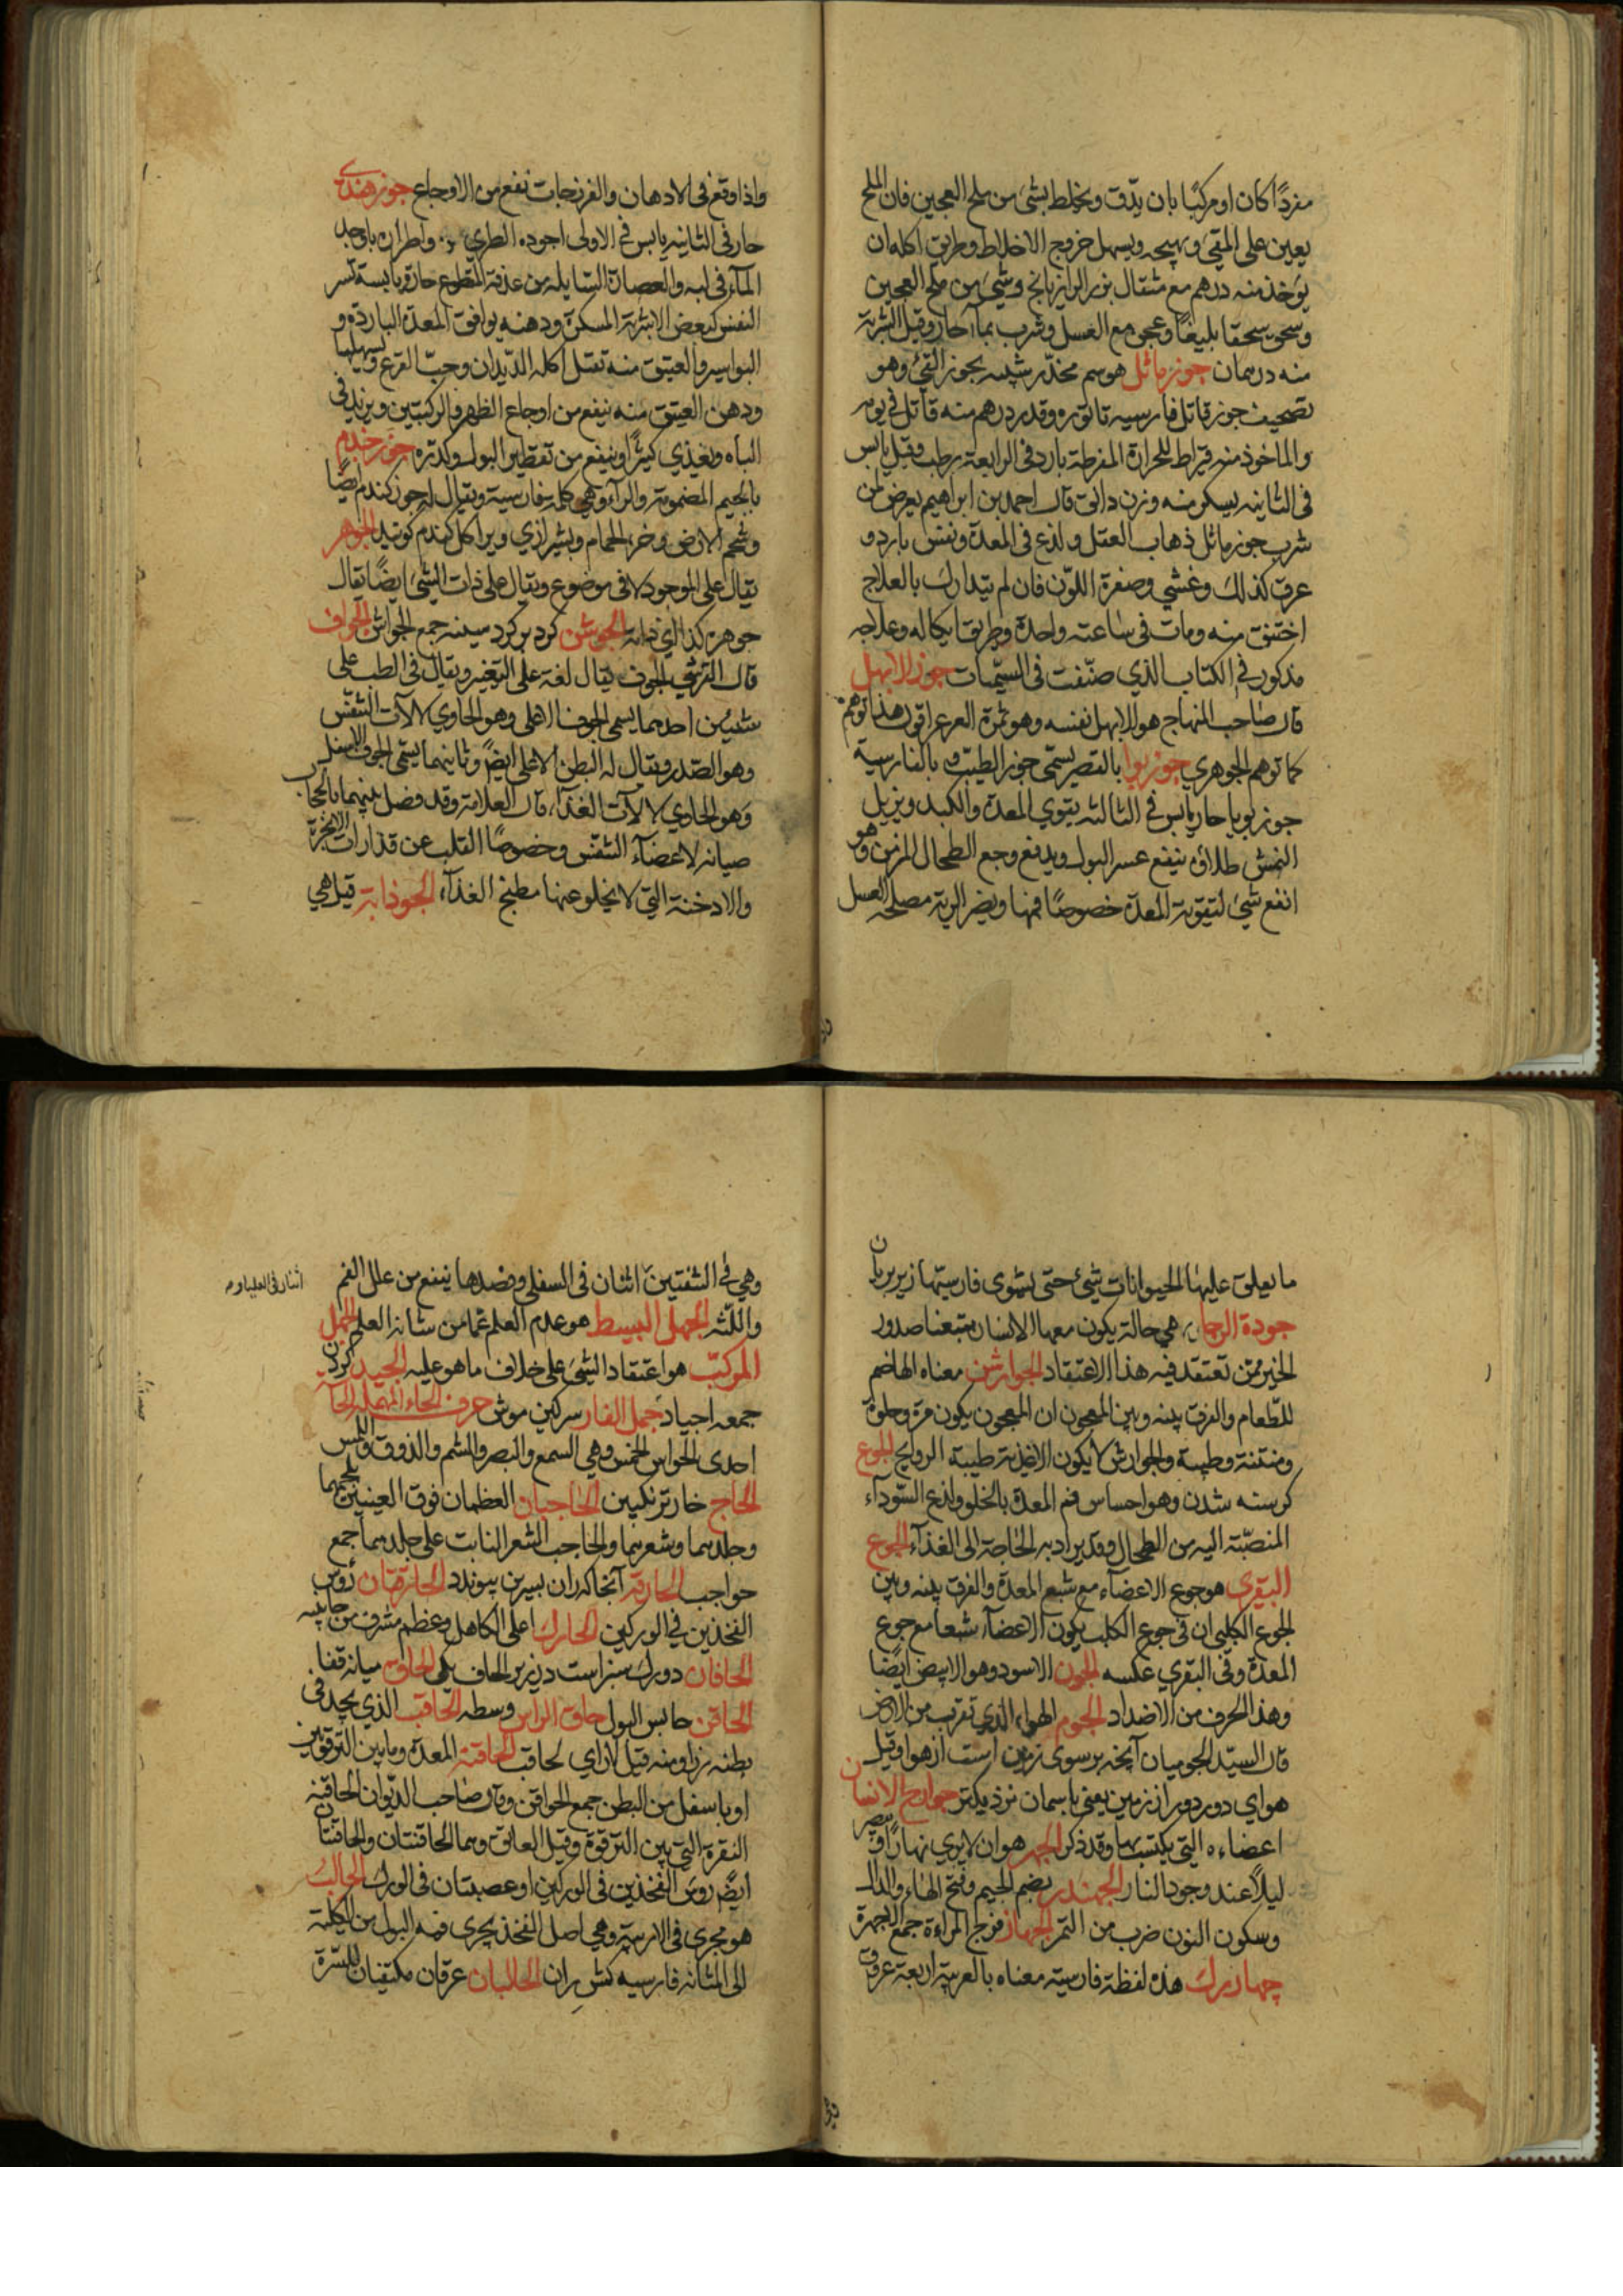 مفردًا كان او مركبًا بان يدّق ويخلط بشئ من ملح العجين فان الملح
يعين على المقيئ ويهيجه ويسهل خروج الاخلاط وطريق اكله ان
يوخذ منه درهم مع مثقال بزر الرازيانج وشئ من ملح العجين
وسحق سحقا بليغًا وعجن مع العسل وشرب بماء حار وقيل الشربة
منه درهمان جوز ماثل هو سم مخدّر شبيه بجوز القئ وهو
تصحيف جوز قاتل فارسيه تاتوره وقدر درهم منه قاتل في يوم
والماخوذ منه قيراط للحرارة المفرطة بارد في الرابعة رطب وقيل يابس
في الثانيه يسكر منه وزن دانق قال احمد بن ابراهيم يعرض لمن
شرب جوز ماثل ذهاب العقل ولذع في المعدة ونفس بارد و
عرق كذالك وغشي وصفرة اللوّن فان لم يتدارك بالعلاج
اختنق منه ومات في ساعته واحدة وطريق اكاله وعلاجه
مذكور في الكتاب الذي صنّفت في السّميات جوز الابهل
قال صاحب المنهاج هو الابهل نفسه وهو ثمرة العرعر اقول هذا توهم
كما توهم الجوهري جوز بوا بالقصر يسمّى جوز الطيّب و بالفارسية
جوز بويا حار يابس في الثالثه يقوي المعدة والكبد ويزيل
النمش طلاق ينفع عسر البول ويدفع وجع الطحال المزمن وهو
انفع شئ لتقوية المعدة خصوصًا فمها ويضر الرية مصلحه العسل
واذا وقع في الادهان والفرزجات نفع من الاوجاع جوز هندي
حار في الثانيه يابس في الاولى اجوده الطري واطراه باوجد
المآء في لبه والعصارة السّايله من عذقه المقطوع حارة يابسة تسر
النفس كبعض الاشربة المسكرة ودهنه يوافق المعدة الباردة و
البواسير والعتيق منه تقتل اكله الدّيدان وحبّ القرع ويسهلها
ودهن العتيق منه ينفع من اوجاع الظهر والركبتين ويزيد في
الباه ويغذي كثيرًا وينفع من تقطير البول وكدره جوز جندم
بالجيم المضمومة والرآء وهي كلمة فارسية ويقال له جوز كندم ايضًا
وشحم الارض وخرء الحمام وبشيرازي ويرا كل كندم كونيد الجوهر
يقال على الموجود لا في موضوع ويقال على ذات الشئ ايضًا يقال
جوهره كذا اي ذاته الجوشن كرد بر كرد سينه جمع الجواشن الجواف
قال القرشي الجوف يقال لغة على التقعير ويقال في الطب على
شيئين احدهما يسمى الجوف الاعلى وهو الحاوي لالآت التنفّس
وهو الصّدر ويقال له البطن الاعلى ايضً وثانيهما يسّمى الجوف الاسفل
وهو الحاوي لالآت الغذآء قال العلامة وقد فصل بينهما بالحجاب
صيانه لاعضآء التنفّس وخصوصًا القلب عن قذارات الابخرة
والادخنة التي لا يخلو عنها مطبخ الغذآء الجوذابة قيل هي
ما يعلق عليها الحيوانات شئ حتى يشوى فارسيّتها زير بريان
جودة الرجا هي حالة يكون معها الانسان متبعنا صدور
الخير ممّن تعتقد فيه هذا الاعتقاد الجوارشن معناه الهاضم
للطّعام والفرق بينه وبين المعجون ان المعجون يكون مرة وحلوة
ومنتنة وطيبة والجوارش لا يكون الا غذية طيبة الروايح الجوع
كرسنه شدن وهو احساس فم المعدة بالخلو ولذع السّودآء
المنصبّة اليه من الطحال وقد يراد به الحاجة الى الغذآء الجوع
البقري هو جوع الاعضآء مع شبع المعدة والفرق بينه وبين
الجوع الكلبي ان في جوع الكلب يكون الاعضآء شبعا مع جوع
المعدة وفي البقري عكسه الجون الاسود وهو الابيض ايضًا
وهذا الحرف من الاضداد الجوم الهواء الذي تقرب من الارض
قال السيّد الجو ميان آنچه بر سوى زمين است از هوا وقيل
هواى دور دور از زمين يعنى باسمان نزديكتر جوارح الانسان
اعضاءه التي يكتسبها وقد ذكر الجهر هو ان لا يرى نهارًا ويبصر
ليلًا عند وجود النار الجهندر بضم الجيم وفتح الهاء والدال
وسكون النون ضرب من التمر الجهاز فرج المراءة جمع الجهزة
چهار رك هذه لفظة فارسيّة معناه بالعربية اربعة عروق
وهي في الشفتين اثنان في السفلى وفصدها ينفع من علل الفم
اثنان في العليا وم
واللّثه الجهل البسيط هو عدم العلم عمّا من شانه العلم الجهل
المركبّ هو اعتقاد الشئ على خلاف ما هو عليه الجيد كردن
جمعه اجياد جمل الفار سركين موش حرف الحاء المهمله الحا
احدى الحواس الخمس وهي السمع والبصر والشم والذوق واللمس
الحاج خار ترنكبين الحاجبان العظمان فوق العينين بلحمهما
وجلدهما وشعرهما والحاجب الشعر النابت على جلدهما جمع
حواجب الحارقة آنجا كه ران بسرين پيوندد الحارقتان رؤس
الفخذين في الوركين الحارك اعلى الكاهل وعظم مشرف من جانبيه
الحافان دو رك سبز است در زير زبان الحاف يكى الحاق ميانه قفا
الحاقن حابس البول حاق الراس وسطه الحاقب الذي يجد في
بطنه رزا ومنه قيل لا راي لحاقب الحاقنة المعدة وما بين الترقوتين
او ما سفل من البطن جمع الحواقن وقال صاحب الديّوان الحاقنه
النقرة التي بين الترقوة وقيل العاتق وهما الحاقنتان والحاقنتان
ايضً رؤس الفخذين في الوركين او عصبتان في الورك الحالب
هو مجرى في الاربية وهي اصل الفخذ يجرى فيه البول من الكلية
الى المثانه فارسيه كش ران الحالبان عرقان مكتنفان للسّرة